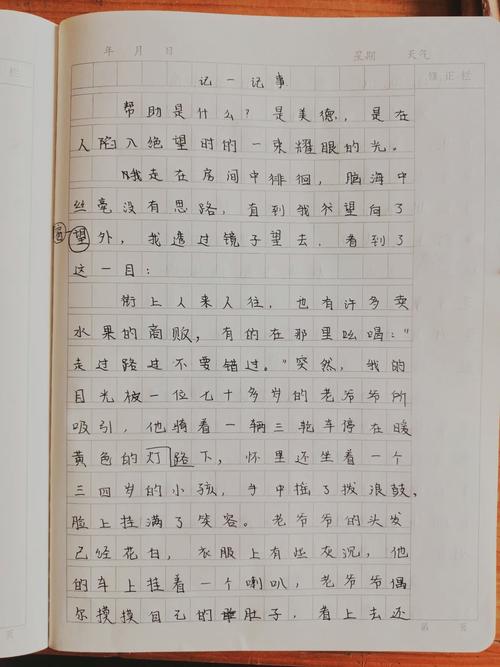 年 月 日 星期 天气
修正栏
记一记事
帮助是什么？是美德，是在
人陷入绝望时的一束耀眼的光。
我走在房间中徘徊，脑海中
丝毫没有思路，直到我望向了
窗
望外，我透过镜子望去，看到了
这一目：
街上人来人往，也有许多卖
水果的商贩，有的在那里吆喝：“
走过路过不要错过。”突然，我的
目光被一位七十多岁的老爷爷所
吸引，他骑着一辆三轮车停在暖
黄色的灯路下，怀里还坐着一个
三四岁的小孩，手中摇了拨浪鼓，
脸上挂满了笑容。老爷爷的头发
已经花白，衣服上有些灰沉，他
的车上挂着一个喇叭，老爷爷偶
尔摸摸自己的肚子，看上去还
第 页
页